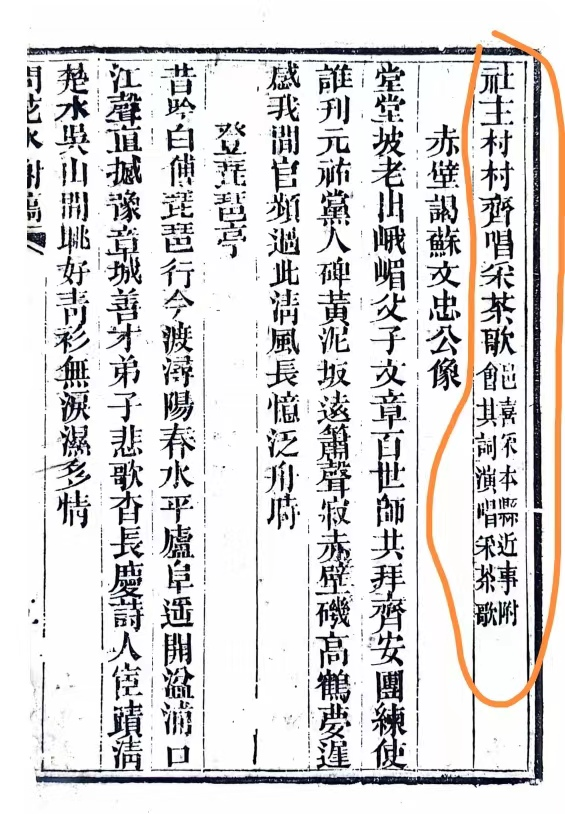 社主村村齊唱采茶歌
邑喜采本縣近事附
會其詞演唱采茶歌
赤壁謁蘇文忠公像
堂堂坡老出峨嵋父子文章百世師共拜齊安團練使
誰刊元祐黨人碑黃泥坂遠簫聲寂赤壁磯高鶴夢遲
感我閒官頻過此清風長憶泛舟時
登琵琶亭
昔吟白傅琵琶行今渡潯陽春水平廬阜遥開湓浦口
江聲直撼豫章城善才弟子悲歌杳長慶詩人宦蹟淸
楚水吳山閒眺好靑衫無淚濕多情